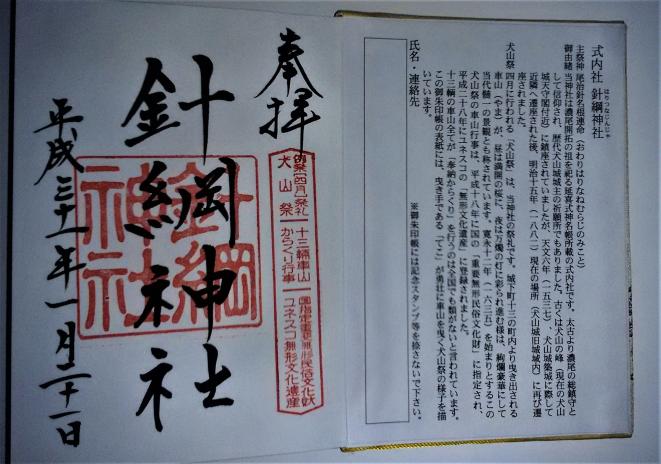 式内社 針綱神社
はりつなじんじゃ
主祭神 尾治針名根連命（おわりはりなねむらじのみこと）
御由緒 当神社は濃尾開拓の祖を祀る延喜式神名帳所載の式内社です。太古より濃尾の総鎮守と
して信仰され、歴代犬山城城主の祈願所でもありました。古くは犬山の峰（現在の犬山
城天守閣付近）に鎮座されていましたが、天文六年（一五三七）、犬山城築城に際して
近隣へ遷座された後、明治十五年（一八八二）現在の場所（犬山城旧城域内）に再び遷
座されました。
犬山祭 四月に行われる「犬山祭」は、当神社の祭礼です。城下町十三の町内より曳き出される
車山（やま）が、昼は満開の桜に、夜は万燭の灯に彩られ進む様は、絢爛豪華にして
当代随一の景観とも称されています。寛永十二年（一六三五）を始まりとするこの
犬山祭の車山行事は、平成十八年に国の「重要無形民俗文化財」に指定され、
平成二十八年にユネスコの「無形文化遺産」に登録されました。
十三輌の車山全てが「奉納からくり」を行うのは全国でも類がないと言われています。
この御朱印帳の表紙には、曳き手である「てこ」が勇壮に車山を曳く犬山祭の様子を描
いています。
※御朱印帳には記念スタンプ等を捺さないで下さい。
氏名・連絡先
奉拝
例祭【四月】祭礼
犬山祭
十三輛車山
からくり行事
国指定重要無形民俗文化財
ユネスコ無形文化遺産
針綱神社
針綱
神社
平成三十一年一月二十一日